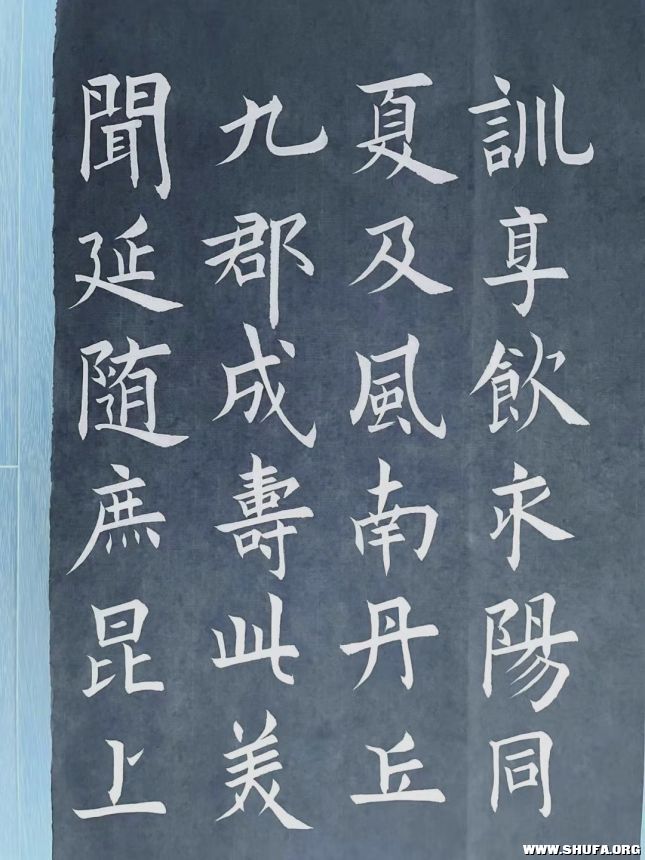 訓享飲永陽同
夏及風南丹丘
九郡成壽此美
聞延随庶昆上
WWW.SHUFA.ORG